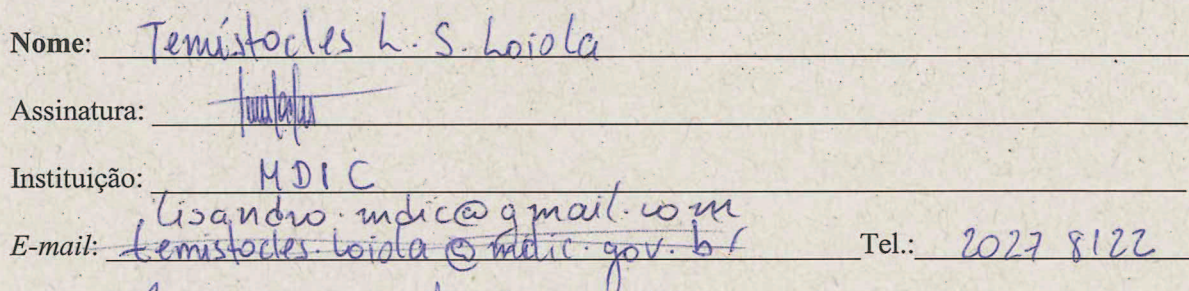 Nome: Temístocles L. S. Loiola
Assinatura:
Instituição: MDIC
lisandro.mdic@gmail.com
E-mail: temistocles.loiola@mdic.gov.br Tel.: 2027 8122